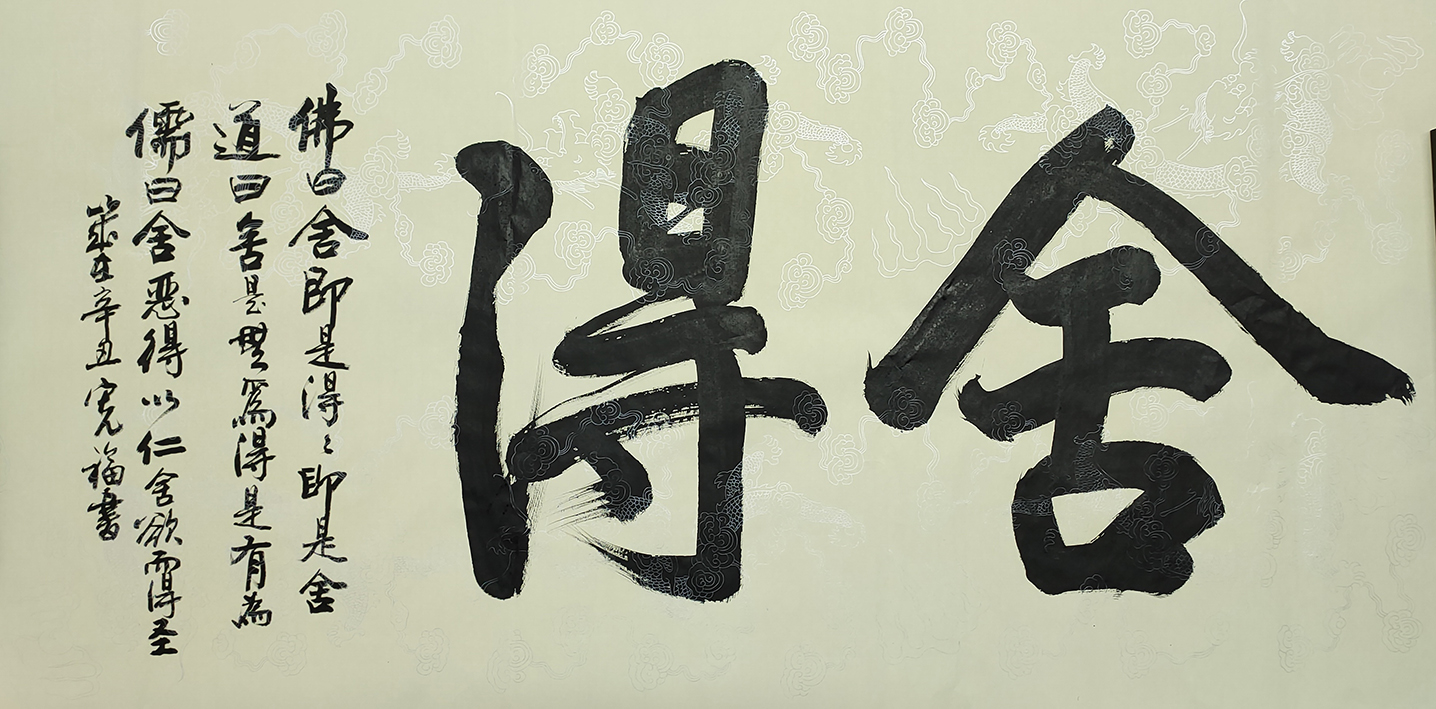 舍得
佛曰舍即是得得即是舍
道曰舍是無為得是有為
儒曰舍惡得以仁舍欲而得圣
歲在辛丑寬福書